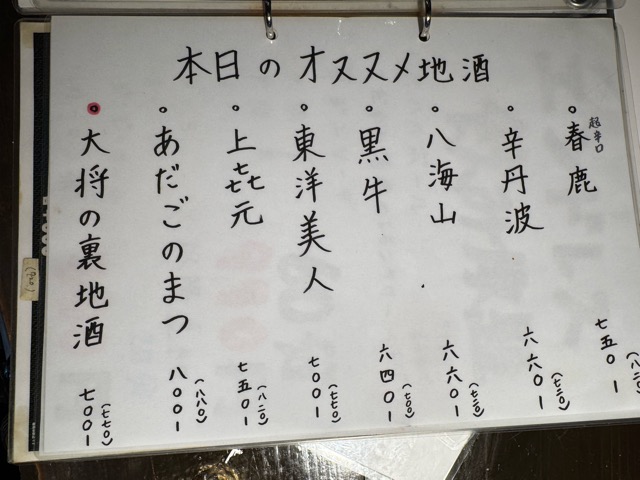 本日のオススメ地酒
。春鹿 超辛口 七五〇l (八二〇)
。辛丹波 六六〇l (七二〇)
。八海山 六六〇l (七二〇)
。黒牛 六四〇l (七〇〇)
。東洋美人 七〇〇l (七七〇)
。上㐂元 七五〇l (八二〇)
。あだごのまつ 八〇〇l (八八〇)
。大将の裏地酒 七〇〇l (七七〇)